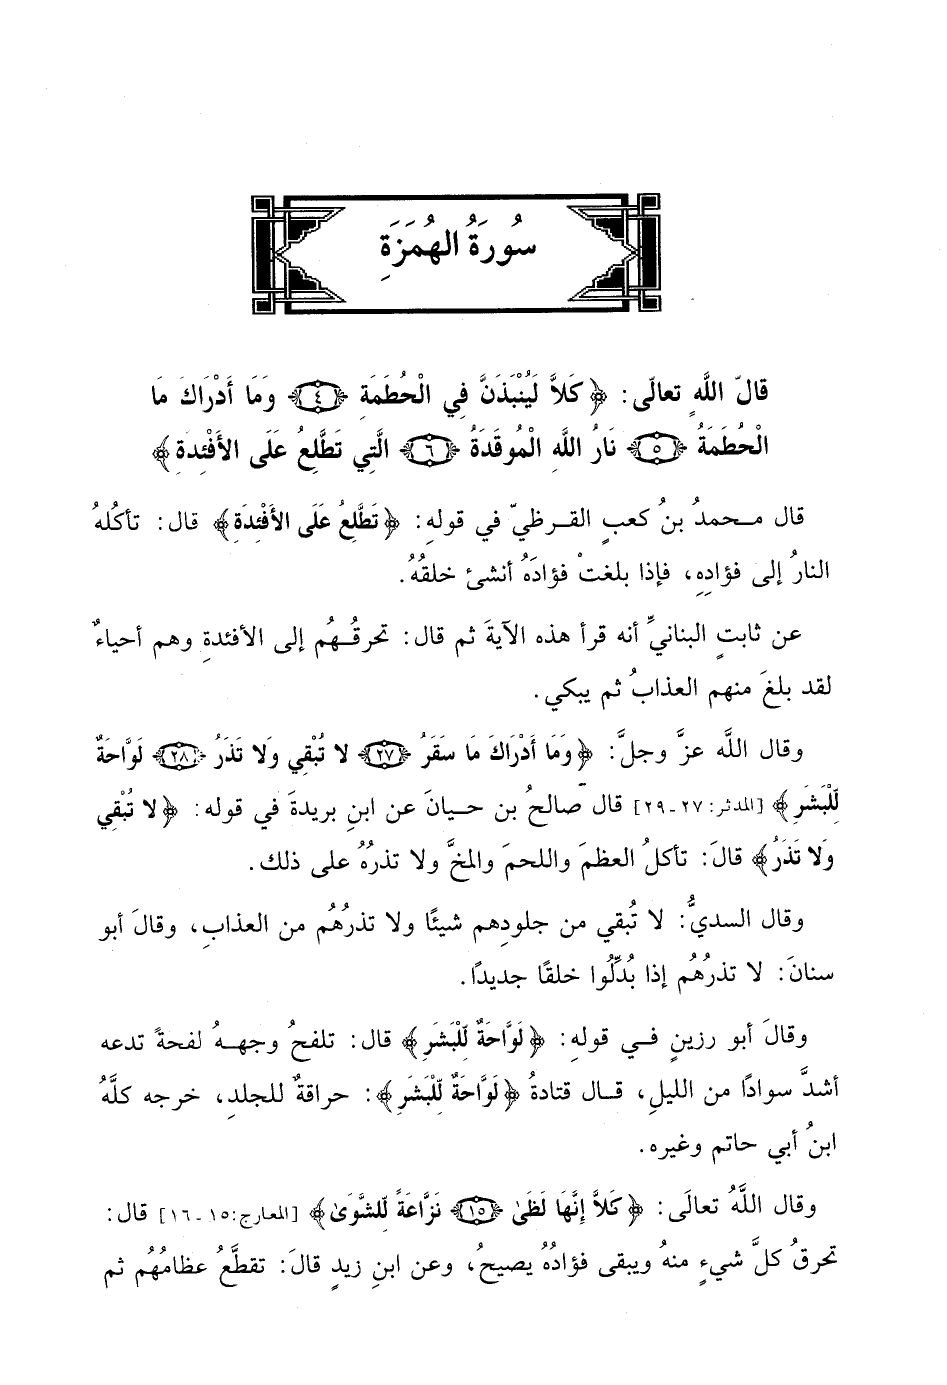 سُورَةُ الهُمَزَةِ
قالَ اللَّهِ تعالَى: ﴿كَلاَّ لَيُنْبَذَنَّ فِي الْحُطَمَةِ ﴿٤﴾ وَمَا أَدْرَاكَ مَا
الْحُطَمَةُ ﴿٥﴾ نَارُ اللَّهِ الْمُوقَدَةُ ﴿٦﴾ الَّتِي تَطَّلِعُ عَلَى الأَفْئِدَةِ﴾
قال محمدُ بنُ كعبٍ القرظيّ في قولِهِ: ﴿تَطَّلِعُ عَلَى الأَفْئِدَةِ﴾ قال: تأكُلهُ
النارُ إلى فؤادِهِ، فإذا بلغتْ فؤادَهُ أنشئ خلقُهُ.
عن ثابتٍ البنانيِّ أنه قرأ هذه الآيةَ ثم قال: تحرقُهُم إلى الأفئدةِ وهم أحياءٌ
لقد بلغَ منهم العذابُ ثم يبكي.
وقال اللَّه عزَّ وجلَّ: ﴿وَمَا أَدْرَاكَ مَا سَقَرُ ﴿٢٧﴾ لا تُبْقِي وَلا تَذَرُ ﴿٢٨﴾ لَوَّاحَةٌ
لِّلْبَشَرِ﴾ [المدثر: ٢٧-٢٩] قال صالحُ بن حيانَ عن ابنِ بريدةَ في قوله: ﴿لا تُبْقِي
وَلا تَذَرُ﴾ قالَ: تأكلُ العظمَ واللحمَ والمخَّ ولا تذرُهُ على ذلك.
وقال السديُّ: لا تُبقي من جلودِهم شيئًا ولا تذرُهُم من العذابِ، وقالَ أبو
سنانَ: لا تذرُهُم إذا بُدِّلُوا خلقًا جديدًا.
وقالَ أبو رزينٍ في قولِهِ: ﴿لَوَّاحَةٌ لِّلْبَشَرِ﴾ قال: تلفحُ وجههُ لفحةً تدعه
أشدَّ سوادًا من الليلِ، قال قتادةُ ﴿لَوَّاحَةٌ لِّلْبَشَرِ﴾: حراقةٌ للجلدِ، خرجه كلَّهُ
ابنُ أبي حاتم وغيره.
وقال اللَّهُ تعالَى: ﴿كَلاَّ إِنَّهَا لَظَىٰ ﴿١٥﴾ نَزَّاعَةً لِّلشَّوَىٰ﴾ [المعارج: ١٥-١٦] قال:
تحرقُ كلَّ شيءٍ منهُ ويبقى فؤادُهُ يصيحُ، وعن ابنِ زيدٍ قالَ: تقطَّعُ عظامُهُم ثم